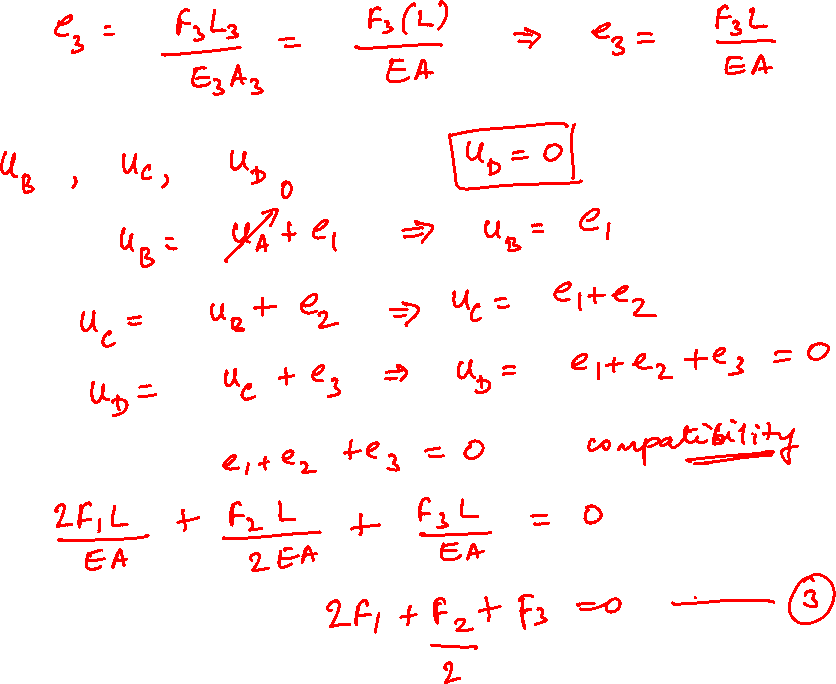 e₃ = F₃L₃/E₃A₃ = F₃(L)/EA ⇒ e₃ = F₃L/EA
u_B , u_C, u_D u_D = 0
u_B = u_A 0 + e₁ ⇒ u_B = e₁
u_C = u_B + e₂ ⇒ u_C = e₁+e₂
u_D = u_C + e₃ ⇒ u_D = e₁+e₂+e₃ = 0
e₁+e₂+e₃ = 0 compatibility
2F₁L/EA + F₂L/2EA + F₃L/EA = 0
2F₁ + F₂/2 + F₃ = 0 — 3